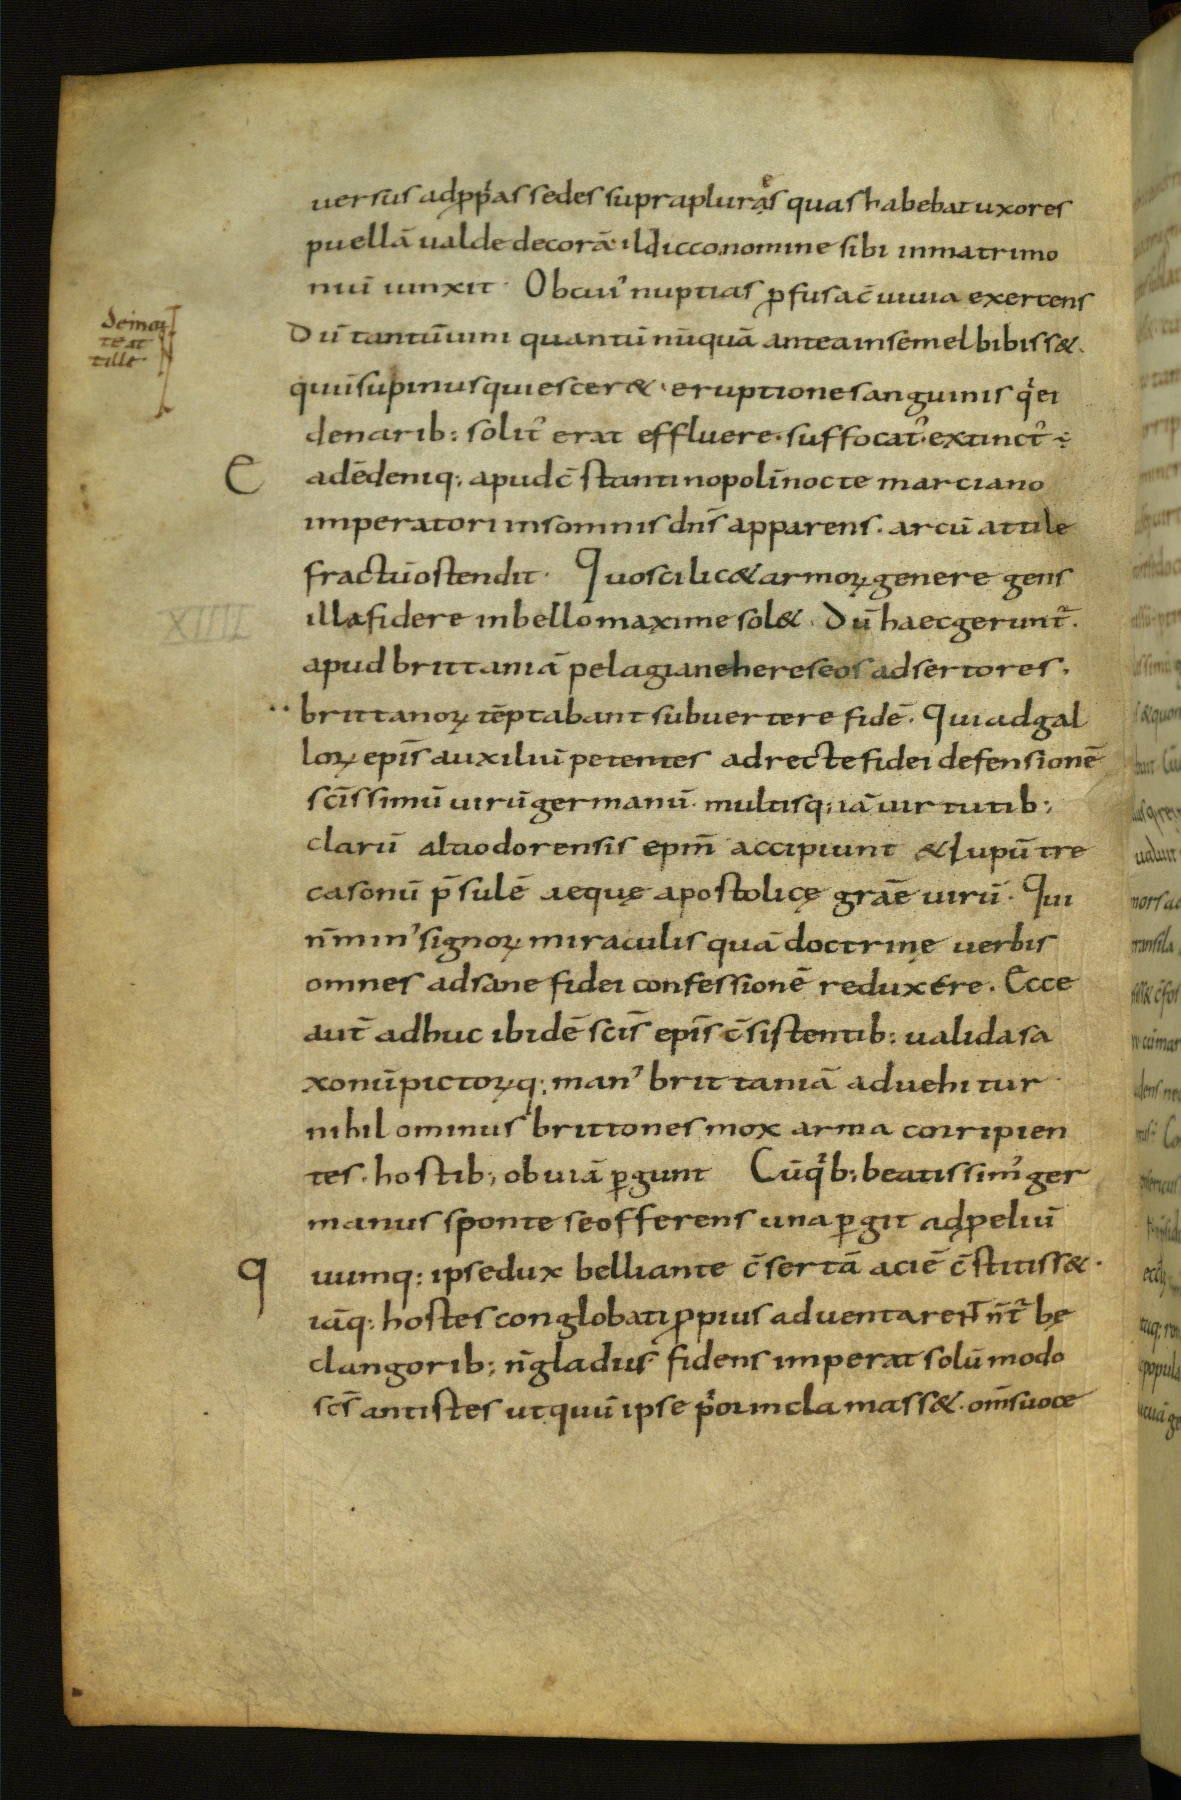 uersus adp̱p̱as sedes suprapluras quas habebat uxores
puellā ualde decorā ildicco nomine sibi in matrimo
niū iunxit · Ob cui' nuptias ꝓfusa c̄uiuia exercens
Dū tantū uini quantū nūquā antea insemel bibiss&.
quū supinus quiescer& · eruptione sanguinis q̇ ei
de narib: solit' erat effluere · suffocat' · extinct' ÷
E adē deniq: apud c̄stantinopolī nocte marciano
imperatori insomnis dn̄s apparens . arcū attile
fractū ostendit · Quo scilic& armoꝝ genere gens
illa fidere inbello maxime sol& . Dū haec gerunt̄ .
apud brittaniā pelagiane hereseos adsertores .
brittanoꝝ tēptabant subuertere fidē . Qui ad gal
loꝝ epīs auxiliū petentes ad recte fidei defensionē
sc̄issimū uirū germanū . multisq: iā uirtutib:
clarū altiodorensis epm̄ accipiunt & lupū tre
casonū p̄sulē aeque̜ apostolice̜ grāe uirū . Qui
n̄ min' signoꝝ miraculis quā doctrine̜ uerbis
omnes ad sane fidei confessionē reduxere . Ecce
aut̄ adhuc ibidē sc̄is epīs c̄sistentib: ualida sa
xonū pictoꝝq: man' brittaniā aduehitur
nihilominus brittones mox arma corripien
tes . hostib: obuiā ꝑgunt Cū q̇b: beatissim' ger
manus sponte se offerens una ꝑgit adp̱eliū
Q uumq: ipse dux belliante c̄sertā aciē c̄stitiss& .
iāq: hostes conglobati ꝓpius aduentarent n̄ tȓbe̜
clangorib: n̄ gladiis fidens imperat solū modo
sc̄s antistes ut quū ipse p̓or inclamass& . om̄s uoce
De mor
te at
tille
XIIII